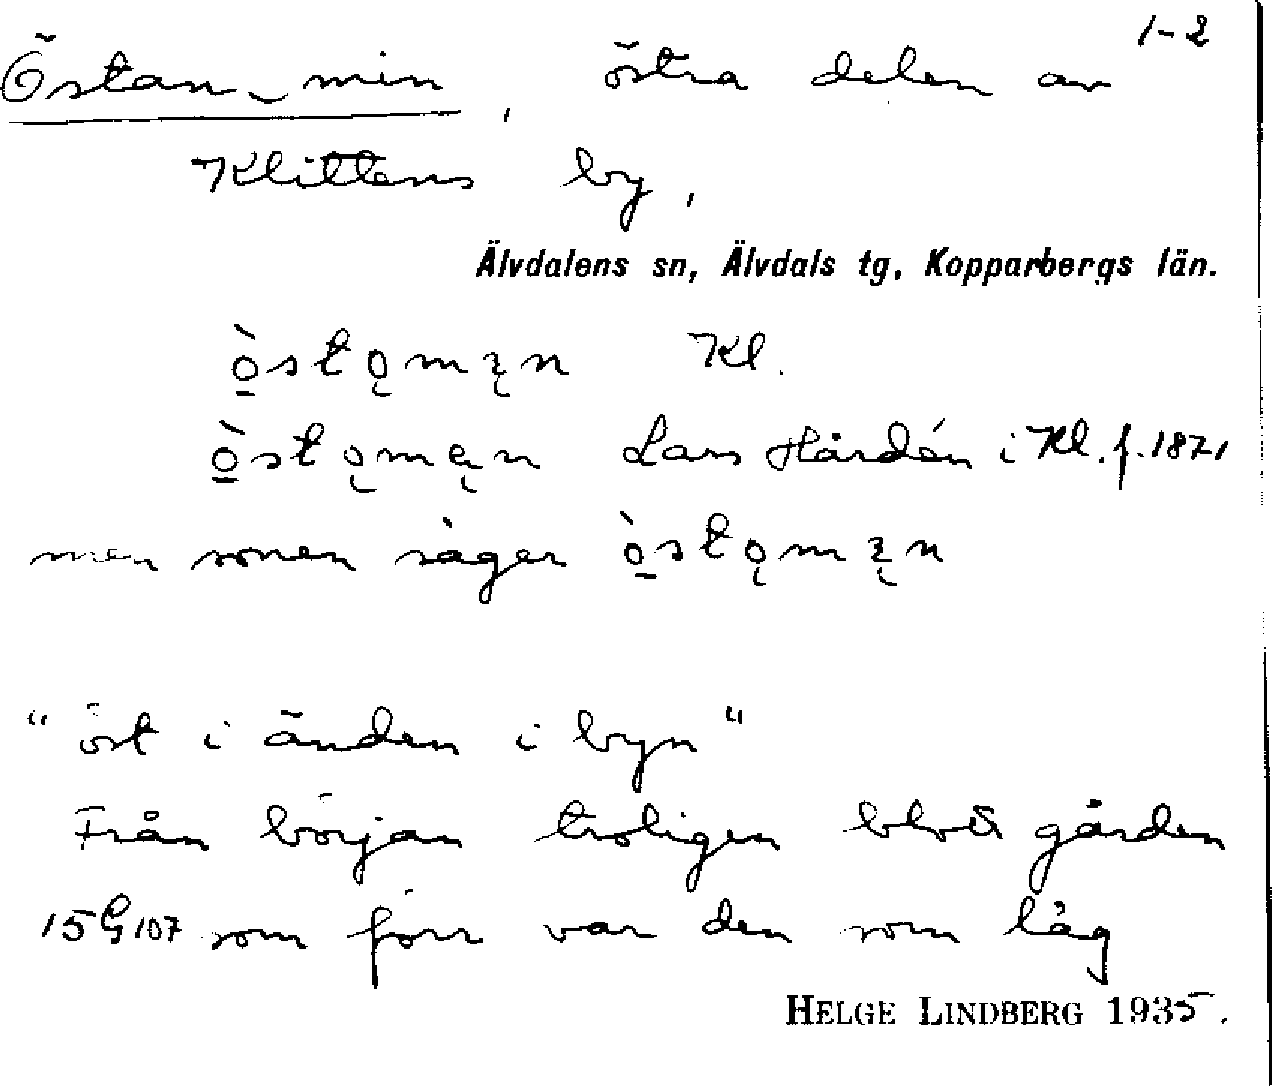 1-2
Östan_min, östra delen av
Klittens by,
Älvdalens sn, Älvdals tg, Kopparbergs län.
Kl.
Lars Hårdén i Kl. f. 1871
men sonen säger
"öst i änden i byn"
Från början troligen blott gården
15G107 som förr var den som låg
HELGE LINDBERG 1935.